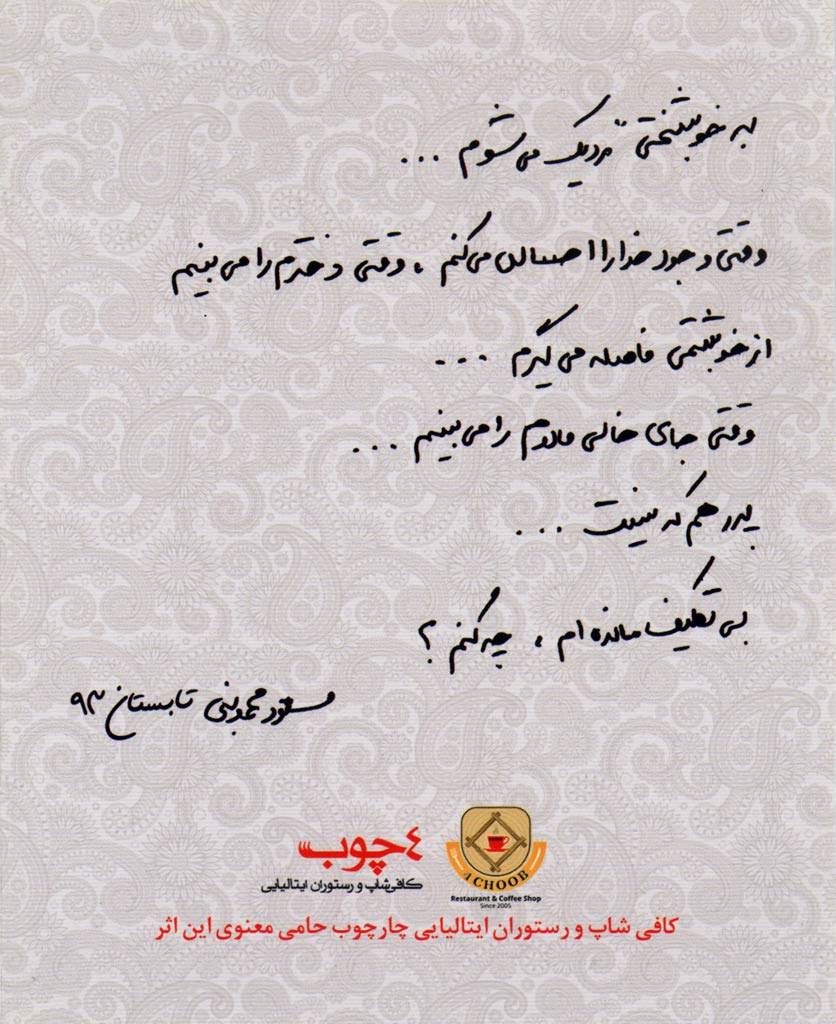 به خوشبختی نزدیک می شوم ...
وقتی وجود خدا را احساس می کنم ، وقتی دخترم را می بینم
از خوشبختی فاصله می گیرم ...
وقتی جای خالی مادرم را می بینم ...
پدر هم که نیست ...
بی تکلیف مانده ام ، چه کنم ؟
تابستان ۹۳
۴چوب
کافی‌شاپ و رستوران ایتالیایی
4CHOOB
Restaurant & Coffee Shop
Since 2005
کافی شاپ و رستوران ایتالیایی چارچوب حامی معنوی این اثر